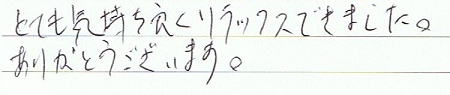 とても気持ち良くリラックスできました。
ありがとうございます。